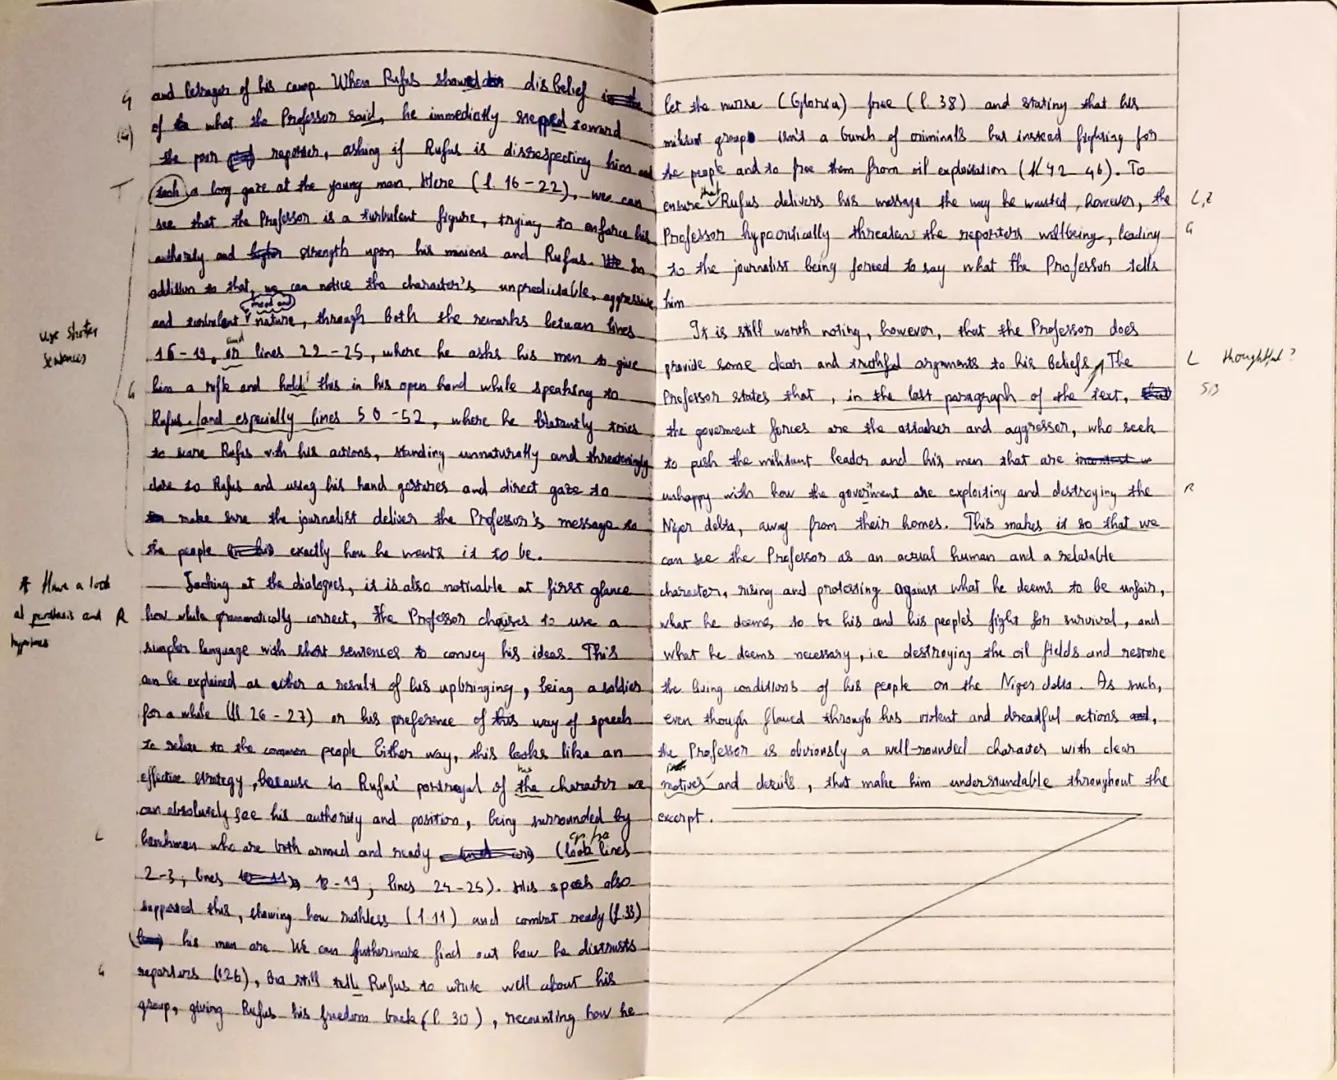 and betrayer of his camp. When Rufus showed disbelief
G
of what the Professor said, he immediatly stepped toward
(G)
the poor reporter, asking if Rufus is disrespecting him and
T
took a long gaze at the young man. Here (l. 16-22), we can
see that the Professor is a turbulent figure, trying to enforce his
authority and strength upon his minions and Rufus. In
addition to that, we can notice the character's unpredictable, aggressive
mood and
and turbulent nature, through both the remarks between lines
use shorter
sentences
and
16-19, on lines 22-25, where he asks his men to give
G
him a rifle and hold this in his open hand while speaking to
Rufus, and especially lines 50-52, where he blatantly tries
to scare Rufus with his actions, standing unnaturally and threateningly
close to Rufus and using his hand gestures and direct gaze to
make sure the journalist deliver the Professor's message to
the people exactly how he wants it to be.
* Have a look
at parataxis and
hypotaxis
Looking at the dialogues, it is also noticable at first glance
R
how while grammatically correct, the Professor chooses to use a
simpler language with short sentences to convey his ideas. This
can be explained as either a result of his upbringing, being a soldier
for a while (ll 26-27) or his preference of this way of speech
to relate to the common people. Either way, this looks like an
his
effective strategy, because in Rufus' portrayal of the character we
can absolutely see his authority and position, being surrounded by
L
henchmen who are both armed and ready (look lines
2-3, lines 18-19, lines 24-25). His speech also
supposed this, showing how ruthless (l.11) and combat ready (l.33)
his men are. We can futhermore find out how he distrusts
G
reporters (l26), but still tells Rufus to write well about his
group, giving Rufus his freedom back (l. 30), recounting how he
let the nurse (Gloria) free (l. 38) and stating that his
militant group isn't a bunch of criminals but instead fighting for
the people and to free them from oil exploitation (ll 42-46). To
that
ensure Rufus delivers his message the way he wanted, however, the
L,Z
Professor hypocritically threatens the reporters wellbeing, leading
G
to the journalist being forced to say what the Professor tells
him.
It is still worth noting, however, that the Professor does
provide some clear and truthful arguments to his beliefs. The
L thoughtful?
Professor states that, in the last paragraph of the text,
the goverment forces are the attacker and aggressor, who seek
to push the militant leader and his men that are
unhappy with how the goveriment are exploiting and destroying the
R
Niger delta, away from their homes. This makes it so that we
can see the Professor as an actual human and a relatable
character, rising and protesting against what he deems to be unfair,
what he deems, to be his and his people's fight for survival, and
what he deems necessary, i.e destroying the oil fields and restore
the living conditions of his people on the Niger delta. As such,
even though flawed through his violent and dreadful actions,
the Professor is obviously a well-rounded character with clear
motives and details, that make him understandable throughout the
excerpt.